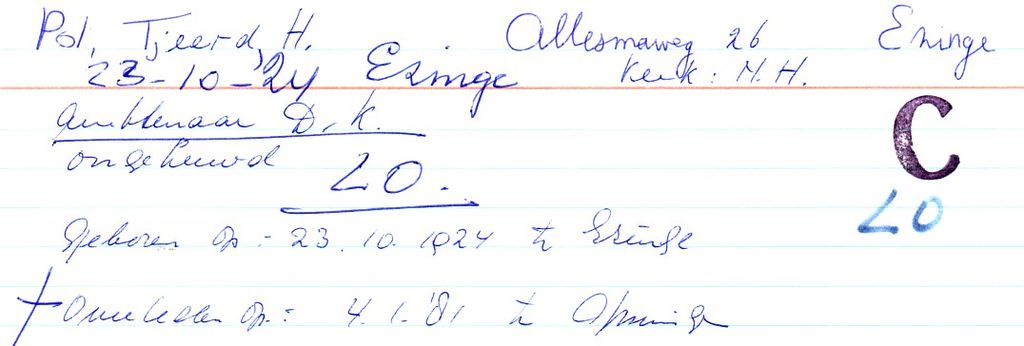 Pol, Tjeerd, H. Allesmaweg 26 Ezinge
23-10-24 Ezinge Kerk: N.H.
C
ambtenaar D.K.
ongehuwd
LO.
LO
Geboren op: 23.10.1924 te Ezinge
† Overleden op: 4.1.'81 te